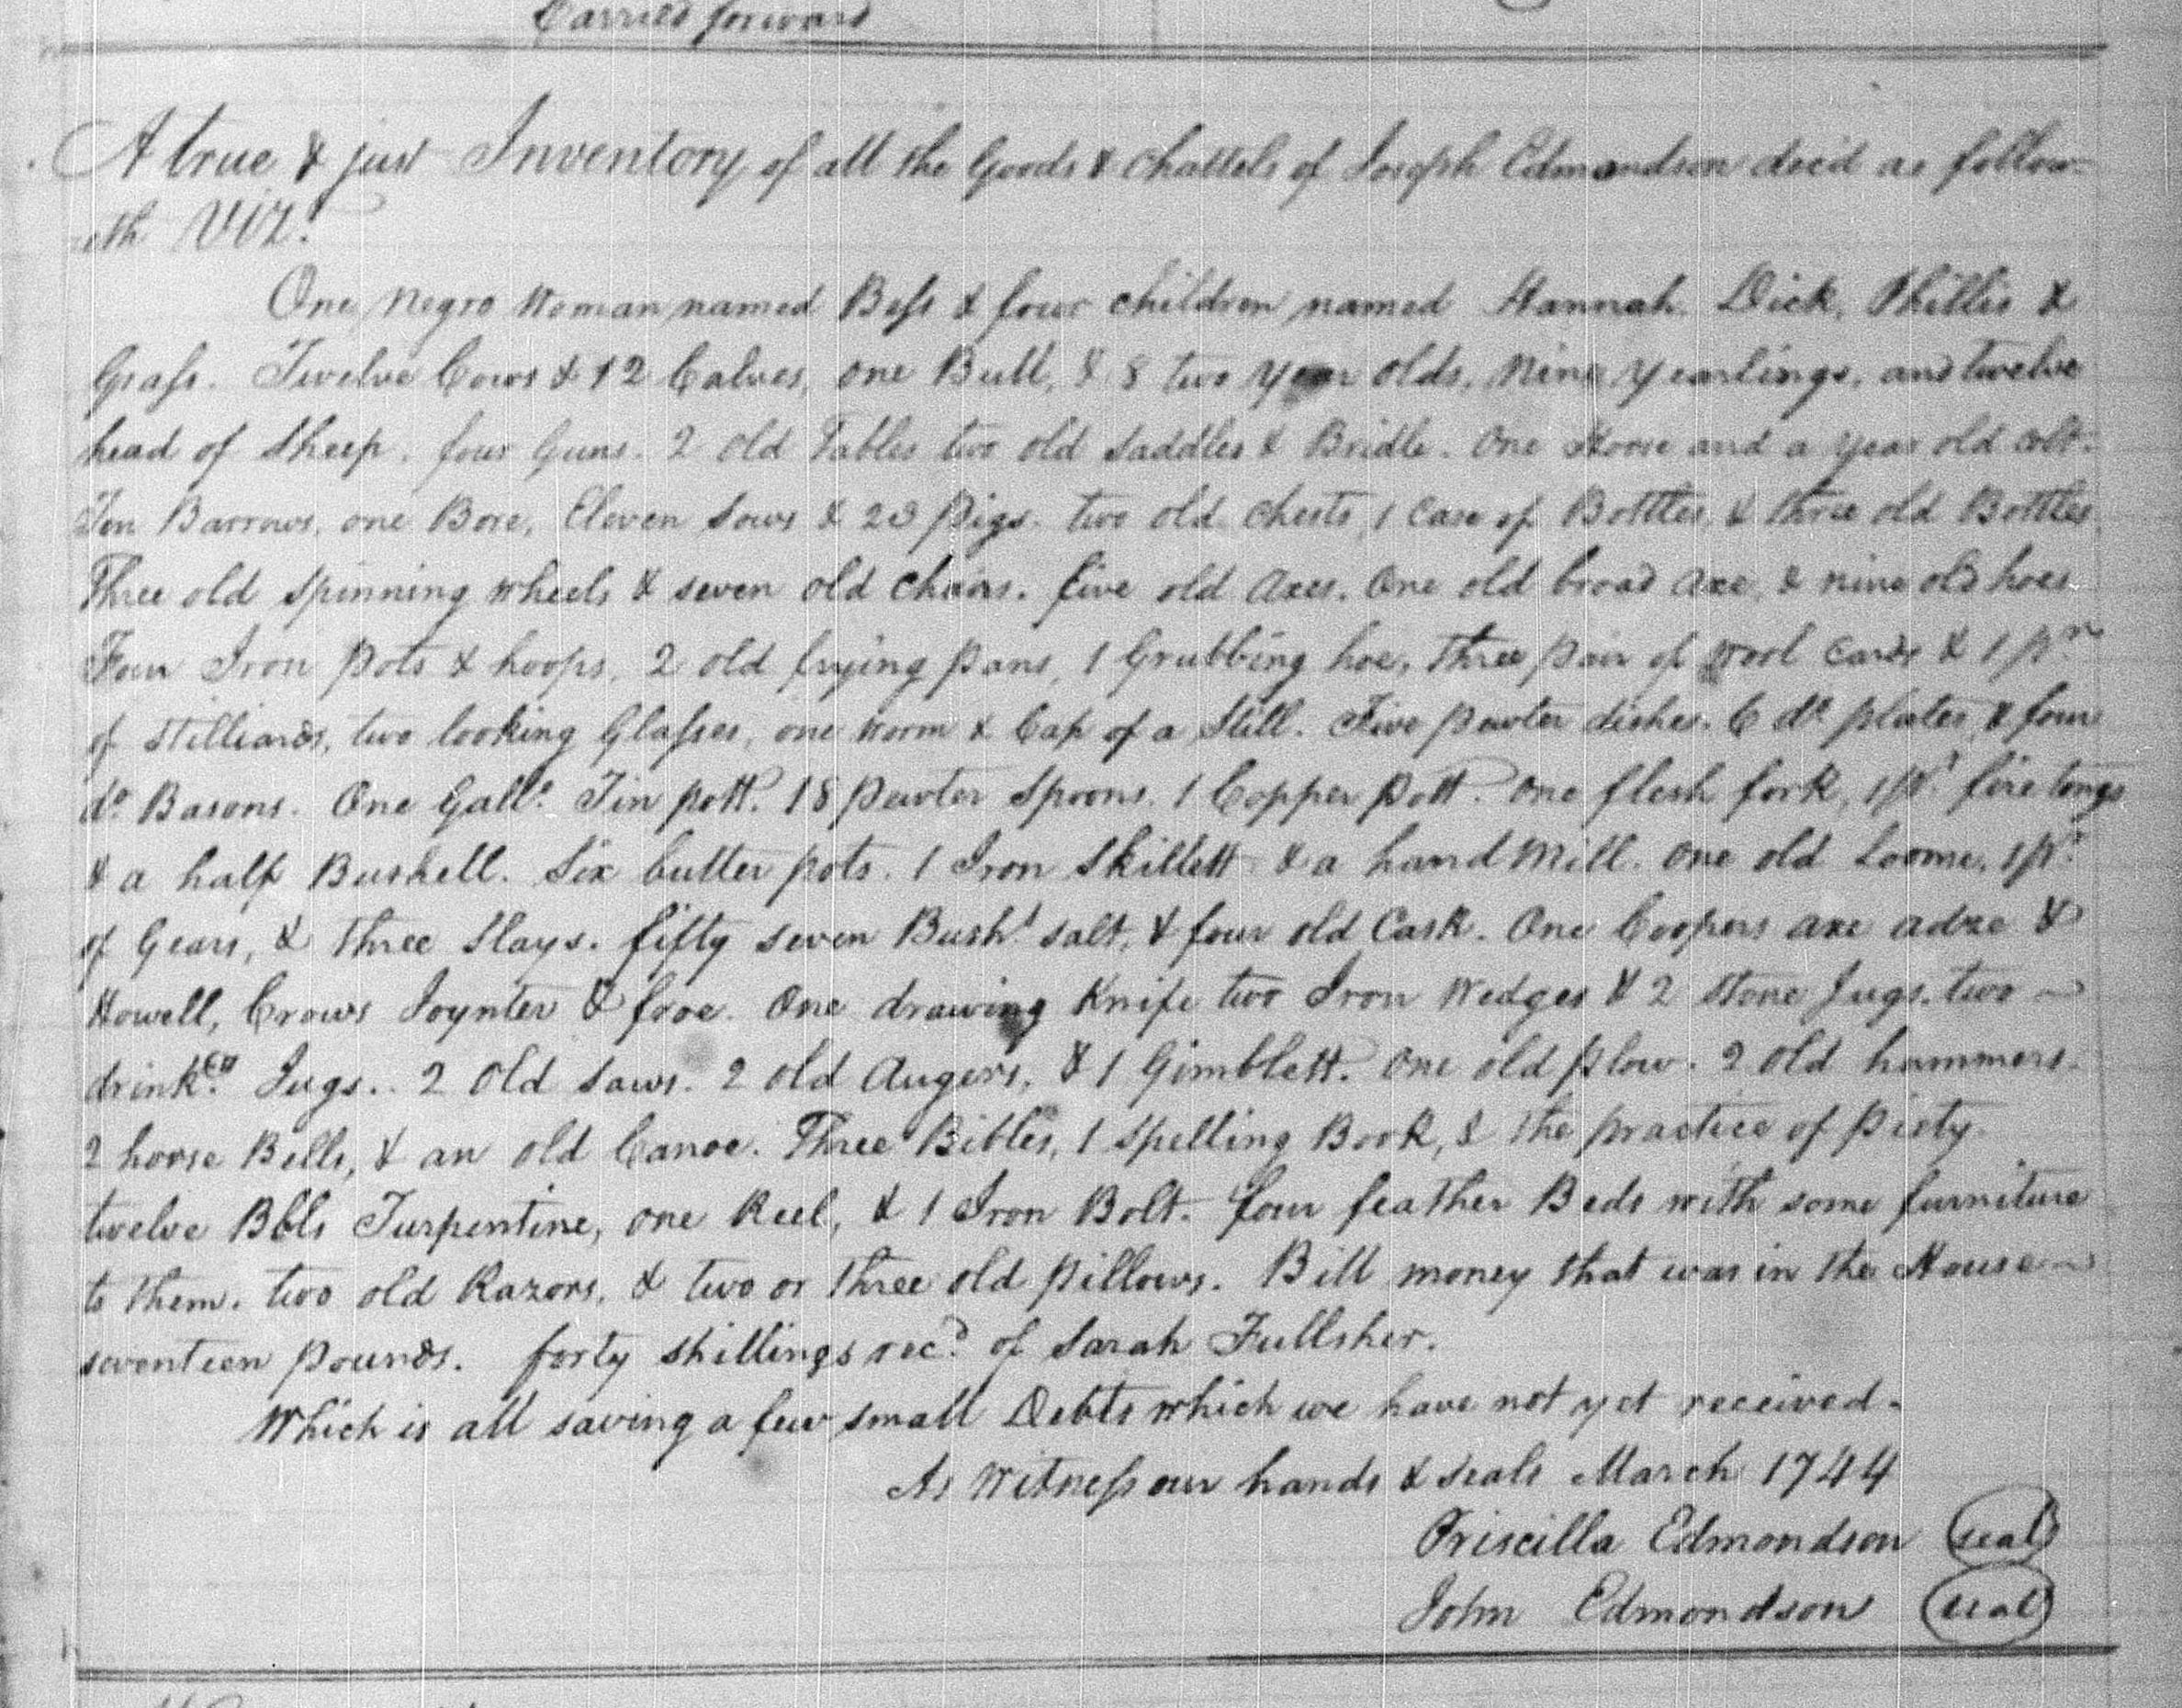 Carried forward
A true & just Inventory of all the Goods & Chattels of Joseph Edmondson dec'd as follow-
eth Viz.
One Negro Woman named Bess & four children named Hannah. Dick, Phillis &
Grass. Twelve Cows & 12 Calves, one Bull, & 8 two year olds, Nine Yearlings, and twelve
head of Sheep. four Guns. 2 old Tables two old Saddles & Bridle. One Horse and a year old colt.
Ten Barrows, one Bore, Eleven Sows & 23 Pigs. two old Chests, 1 Case of Bottles, & three old Bottles,
Three old Spinning wheels & seven old chairs. five old Axes. One old broad Axe, & nine old hoes
Four Iron Pots & hoops, 2 old frying pans, 1 Grubbing hoe, Three pair of wool cards & 1 pr.
of Stilliards, two looking Glasses, one worm & Cap of a Still. Five pewter dishes. 6 do. plates, & four
do. Basons. One Gall. Tin pott. 18 pewter Spoons. 1 Copper Pott. One flesh fork, 1 pr. fire tongs
& a half Bushell. Six butter pots. 1 Iron Skillett & a hand Mill. One old Loome, 1 pr.
of Gears, & three Slays. fifty seven Bushl. salt, & four old Cask. One Coopers axe adze &
Howell, Crows Joynter & froe. One drawing Knife two Iron Wedges & 2 Stone Jugs. two
Jugs. 2 Old Saws. 2 old Augers, & 1 Gimblett. One old plow. 2 Old hammers.
2 horse Bells, & an old Canoe. Three Bibles, 1 Spelling Book, & the practice of Piety.
twelve Bbls Turpentine, one Reel, & 1 Iron Bolt. four feather Beds with some furniture
to them. two old Razors, & two or three old pillows. Bill money that was in the House
seventeen pounds. forty shillings rec'd. of Sarah Fullsher.
Which is all saving a few small Debts which we have not yet received.
As Witness our hands & seals March 1744
Priscilla Edmondson seal
John Edmondson seal